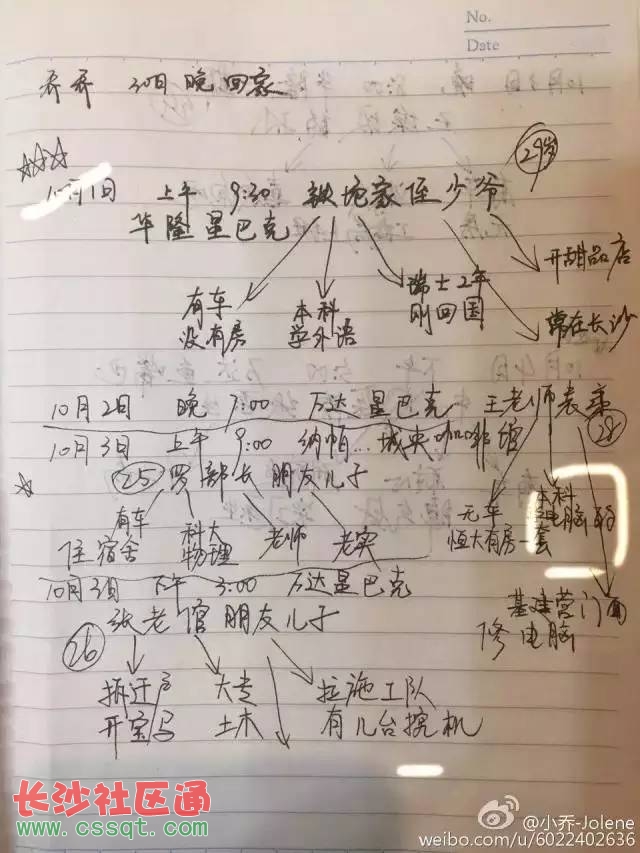 No.
Date
乔乔 30日晚回家
10月1日 上午 9:30 铁坨家侄少爷 29岁
华隆星巴克
开甜品店
有车 没有房
本科 学外语
瑞士2年 刚回国
常在长沙
10月2日 晚 7:00 万达星巴克 王老师表弟 28
10月3日 上午 9:00 纳帕…城央咖啡馆
25 罗部长朋友儿子
有车 住宿舍
科大 物理
老师
老实
无车 恒大有房一套
本科 电脑
基建营门面 修电脑
10月3日 下午 3:00 万达星巴克
26 张老倌朋友儿子
拆迁户 开宝马
大专 土木
拉施工队 有几台挖机
长沙社区通
www.cssqt.com
@小乔-Jolene
weibo.com/u/6022402636